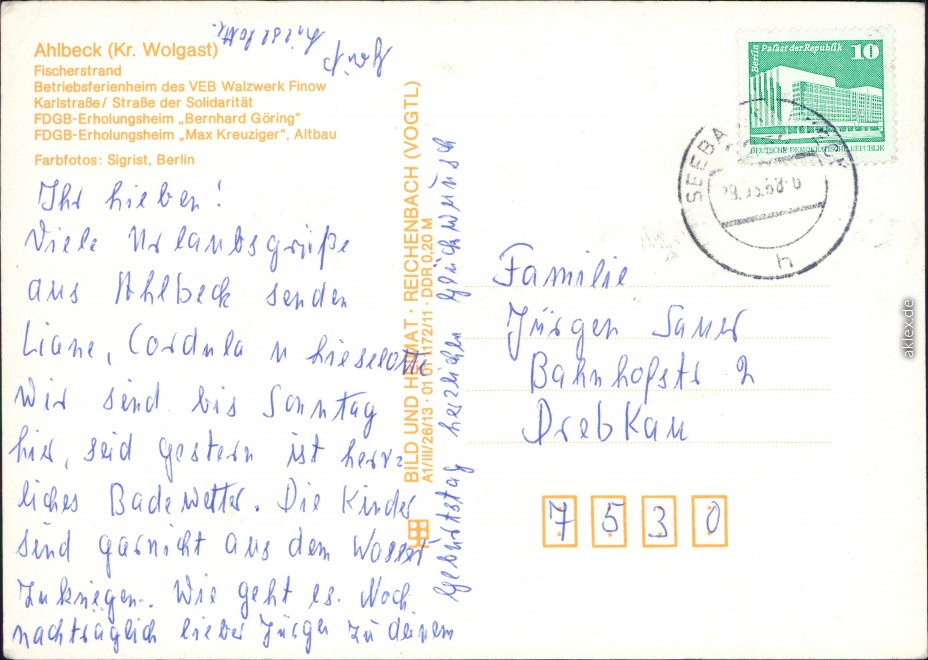 Ahlbeck (Kr. Wolgast)
Fischerstrand
Betriebsferienheim des VEB Walzwerk Finow
Karlstraße / Straße der Solidarität
FDGB-Erholungsheim „Bernhard Göring"
FDGB-Erholungsheim „Max Kreuziger", Altbau
Farbfotos: Sigrist, Berlin
Ihr lieben!
Viele Urlaubsgrüße
aus Ahlbeck senden
Liane, Cordula u Lieselotte
Wir sind bis Sonntag
hier, seid gestern ist herr-
liches Badewetter. Die Kinder
sind garnicht aus dem Wasser
zukriegen. Wie geht es. Noch
nachträglich lieber Jürgen zu deinem
Geburtstag herzlichen Glückwunsch
Lieselotte
BILD UND HEIMAT · REICHENBACH (VOGTL)
A1/III/26/13 · 01 01 1172/11 · DDR 0,20 M
Berlin Palast der Republik
10
DEUTSCHE DEMOKRATISCHE REPUBLIK
SEEBA
h
Familie
Jürgen Sauer
Bahnhofstr 2
Drebkau
7530
akpool.de